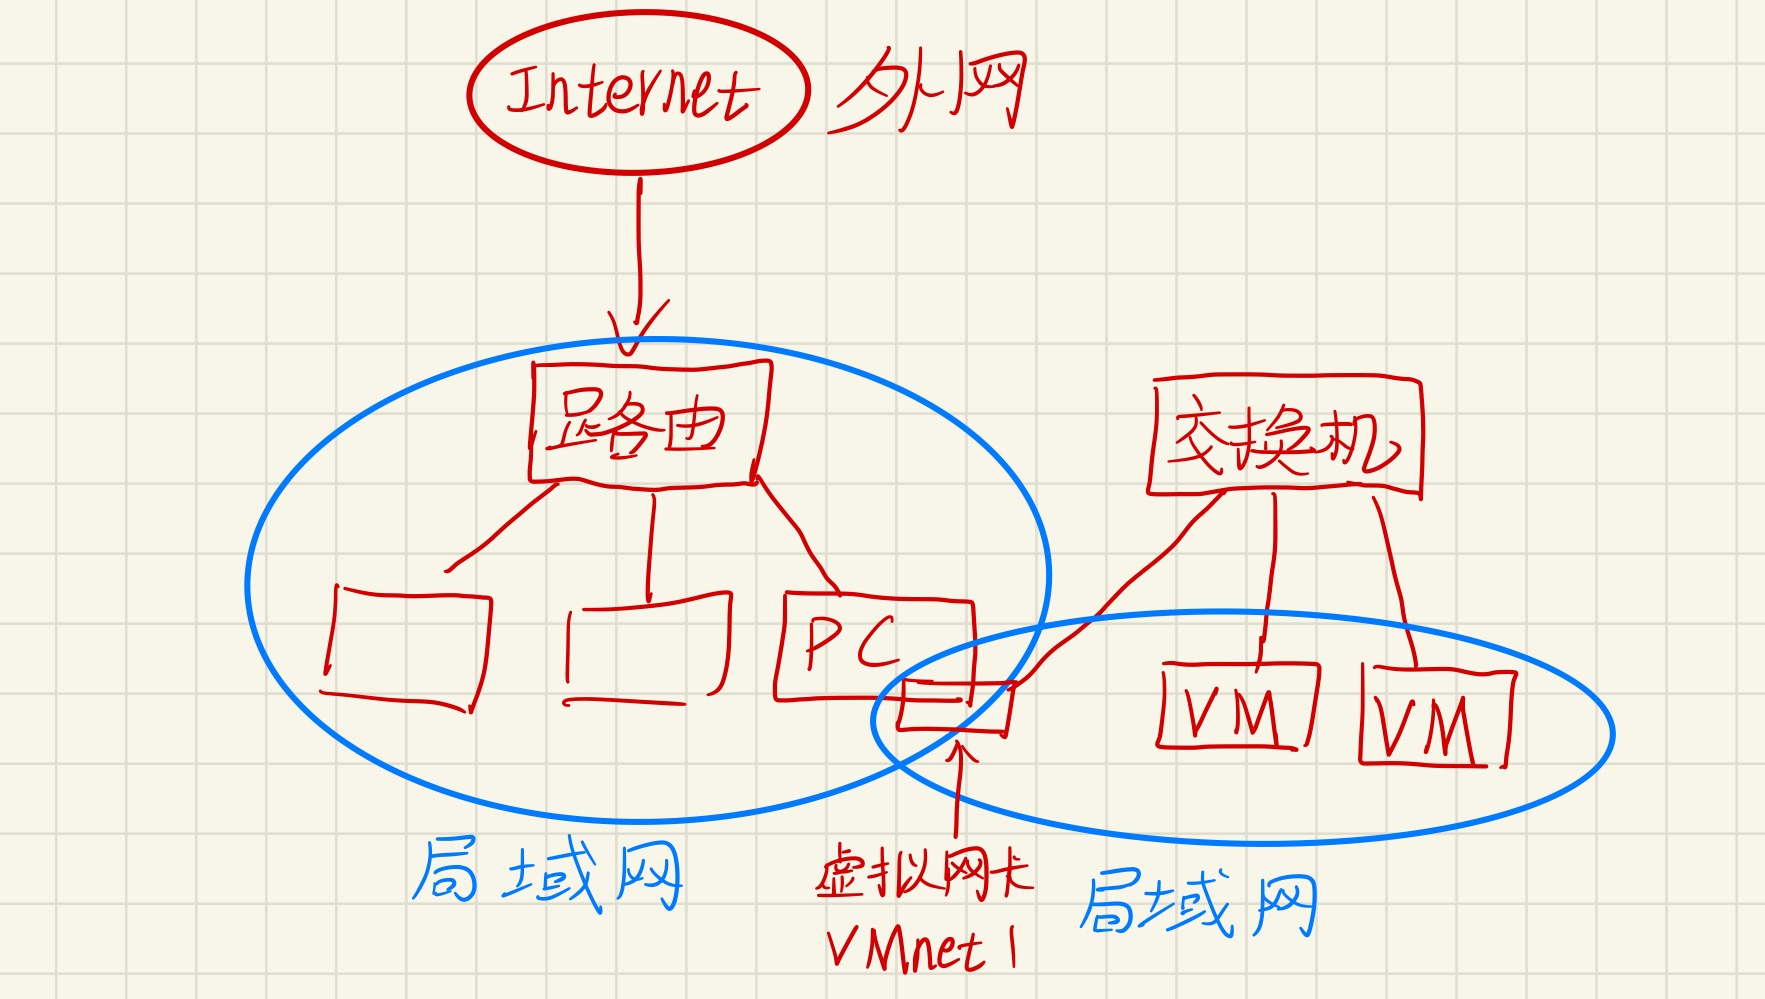 Internet 外网
路由
交换机
PC
VM
VM
局域网
虚拟网卡
VMnet1
局域网